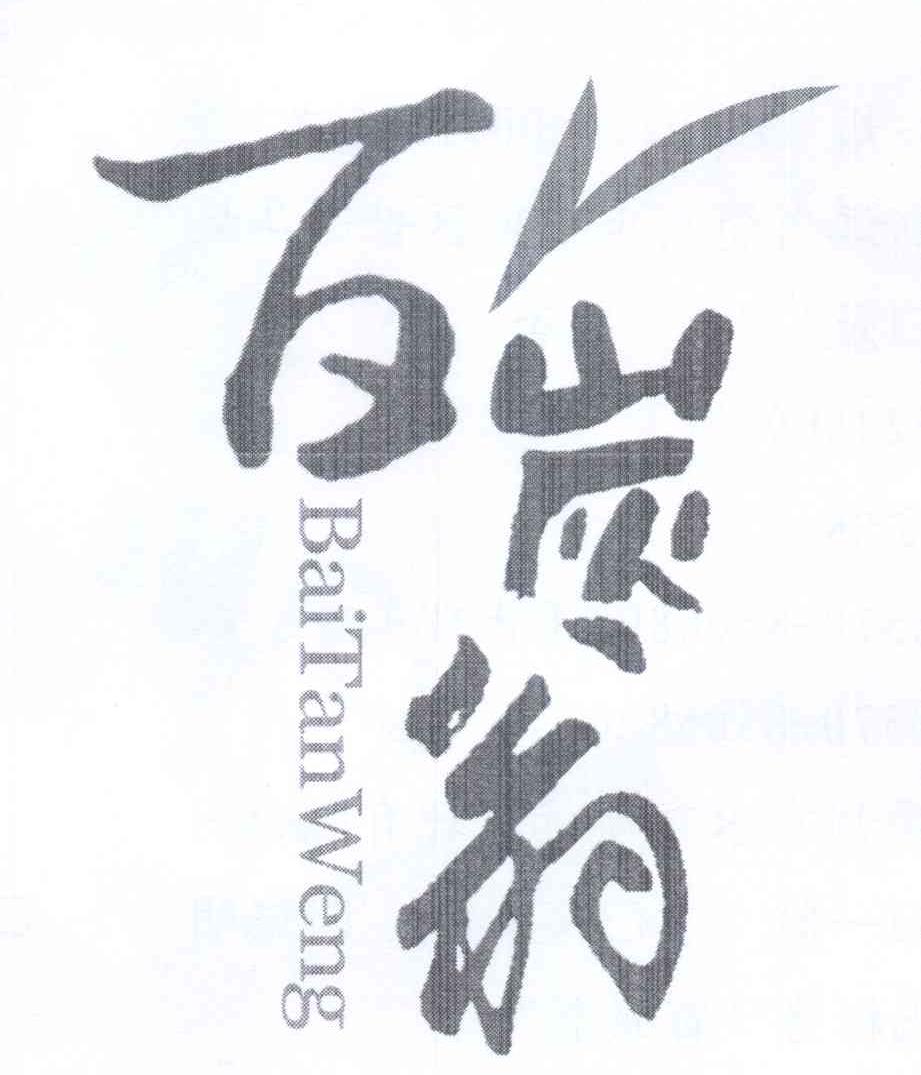 百炭翁
BaiTanWeng